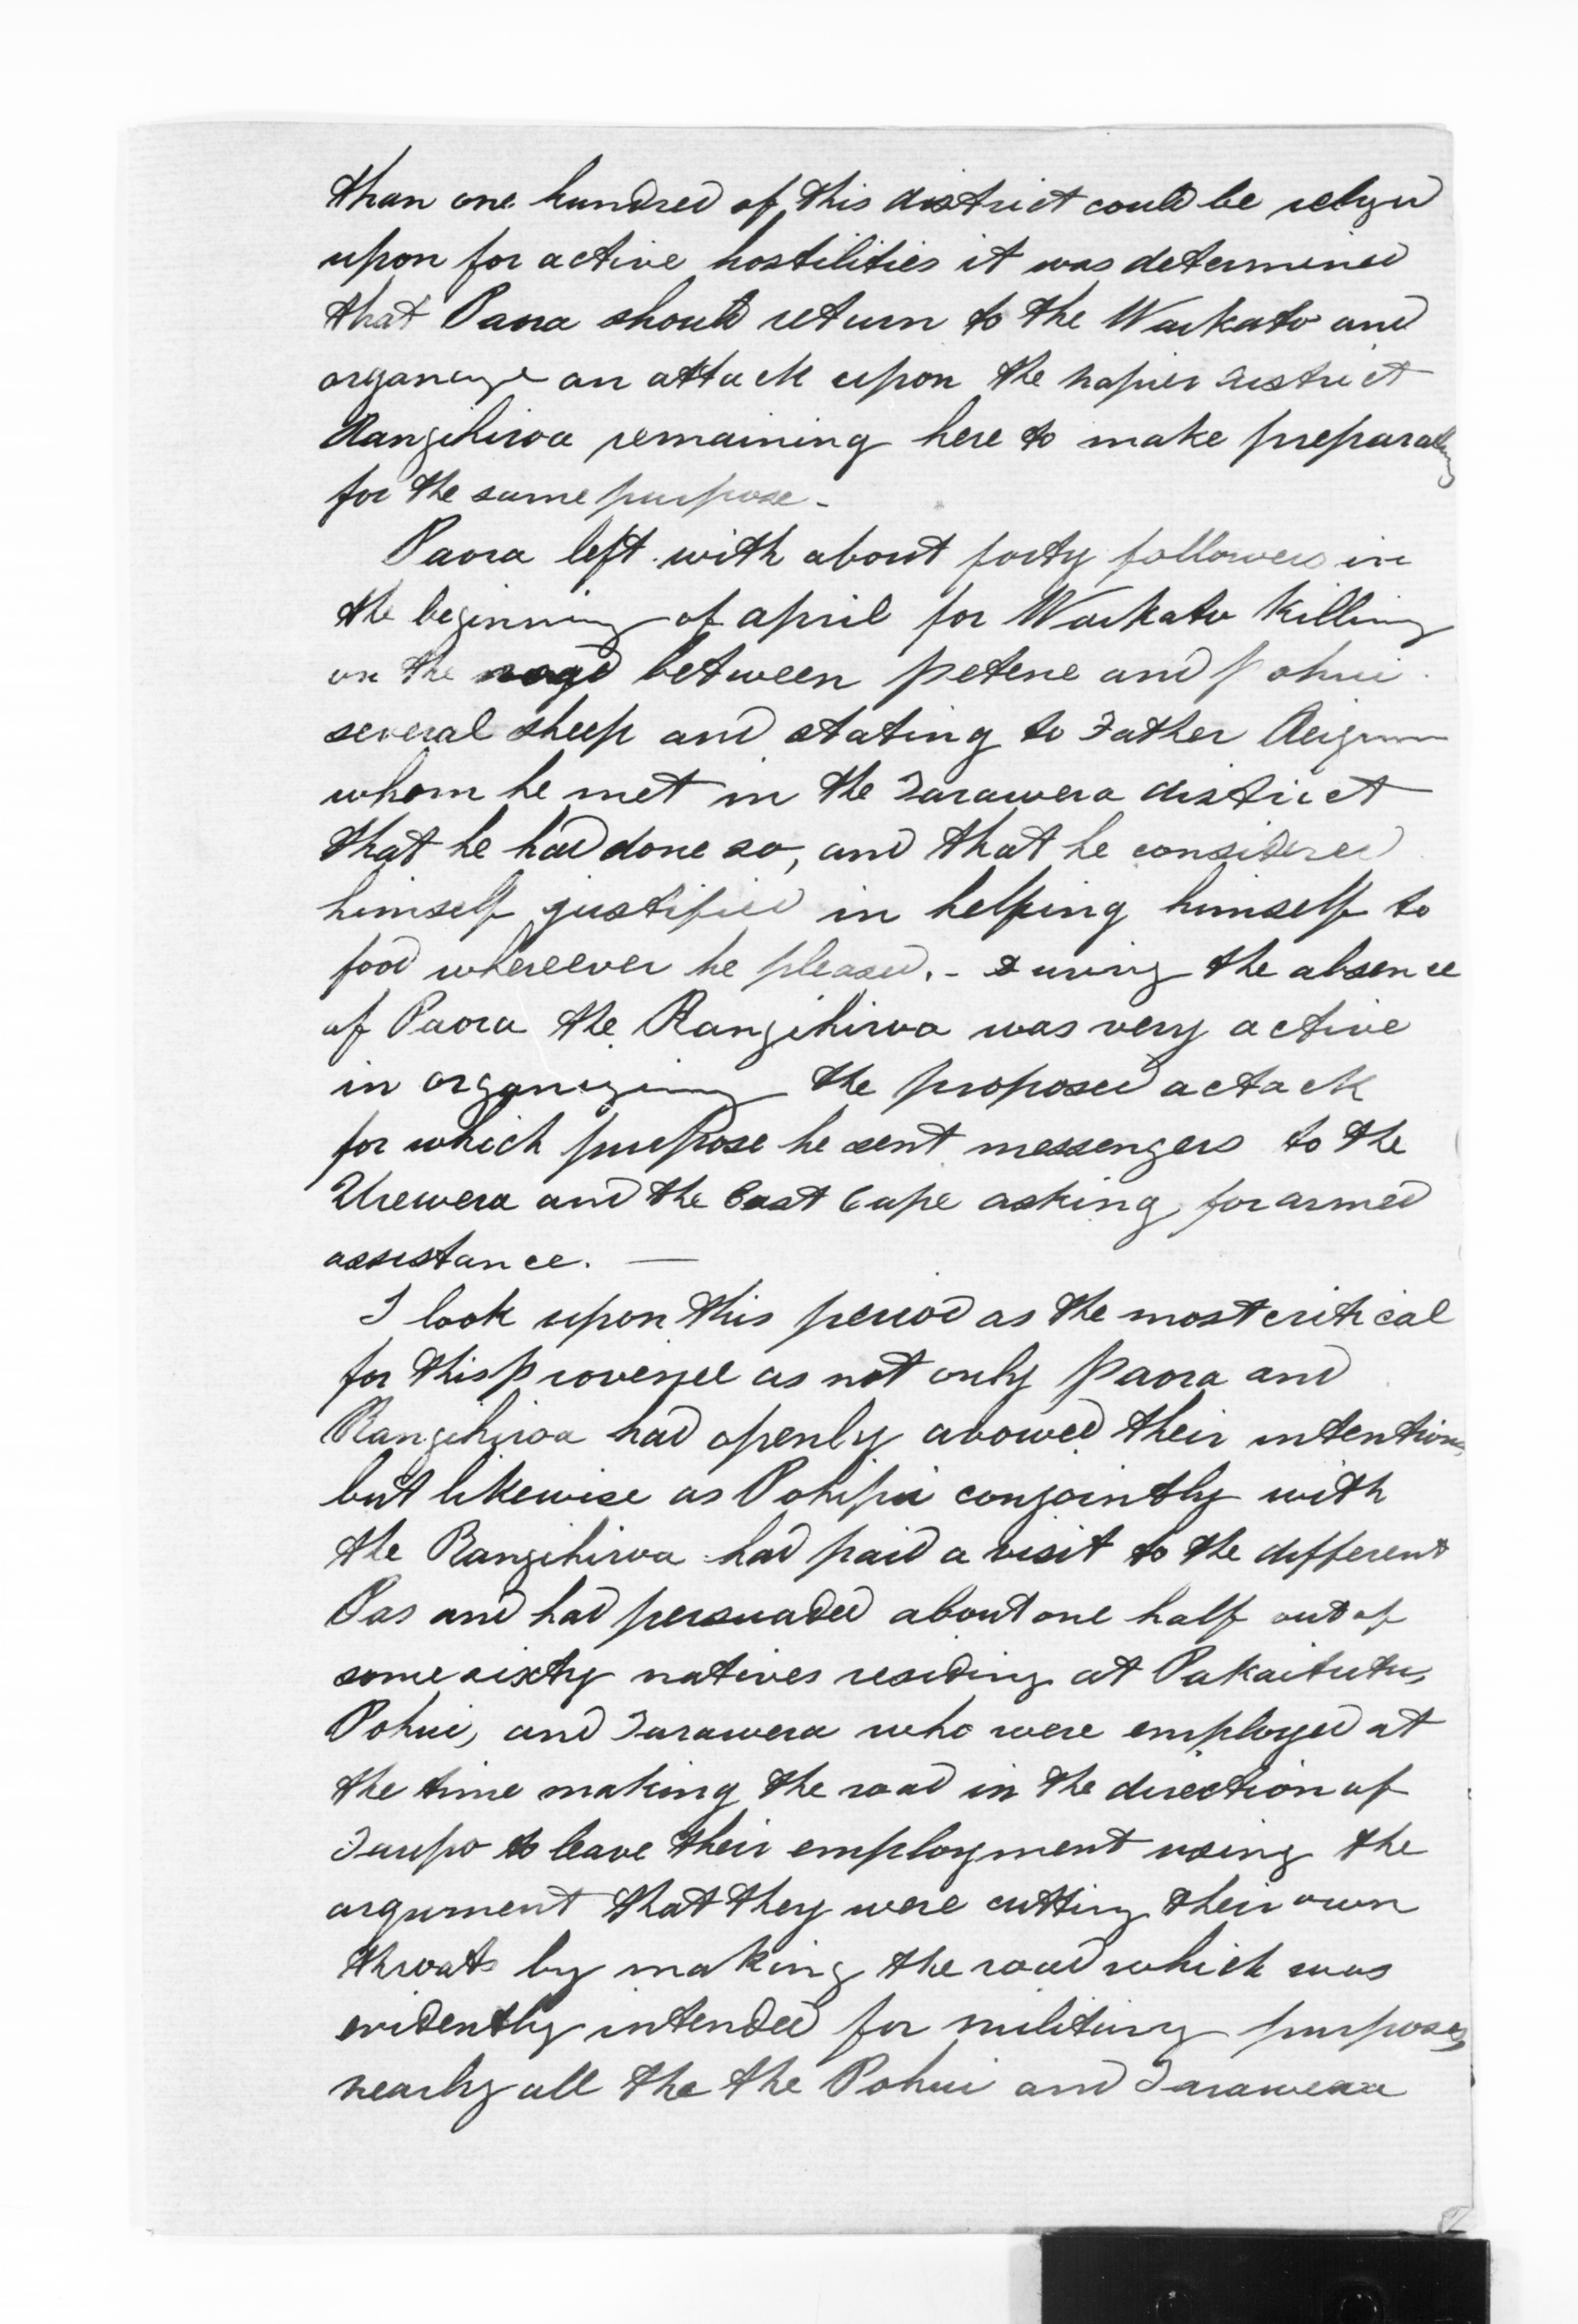 than one hundred of this district could be relyed
upon for active hostilities it was determined
that Paora should return to the Waikato and
organize an attack upon the napier district
Rangihiroa remaining here to make preparations
for the same purpose -
Paora left with about forty followers in
the beginning of april for Waikato killing
on the road between petene and pohui
several sheep and stating to Father
whom he met in the Tarawera district
that he had done so, and that he considered
himself justified in helping himself to
food whereever he pleased. - During the absence
of Paora the Rangihiroa was very active
in organizing the proposed actack
for which purpose he sent messengers to the
Urewera and the East Cape asking for armed
assistance. —
I look upon this period as the most critical
for this province as not only paora and
Rangihiroa had openly avowed their intentions,
but likewise as Pohipi conjointly with
the Rangihiroa had paid a visit to the different
Pas and had persuaded about one half out of
some sixty natives residing at Pakaitutu,
Pohui, and Tarawera who were employed at
the time making the road in the direction of
Taupo to leave their employment using the
argument that they were cutting their own
throats by making the road which was
evidently intended for military purposes,
nearly all the the Pohui and Tarawera